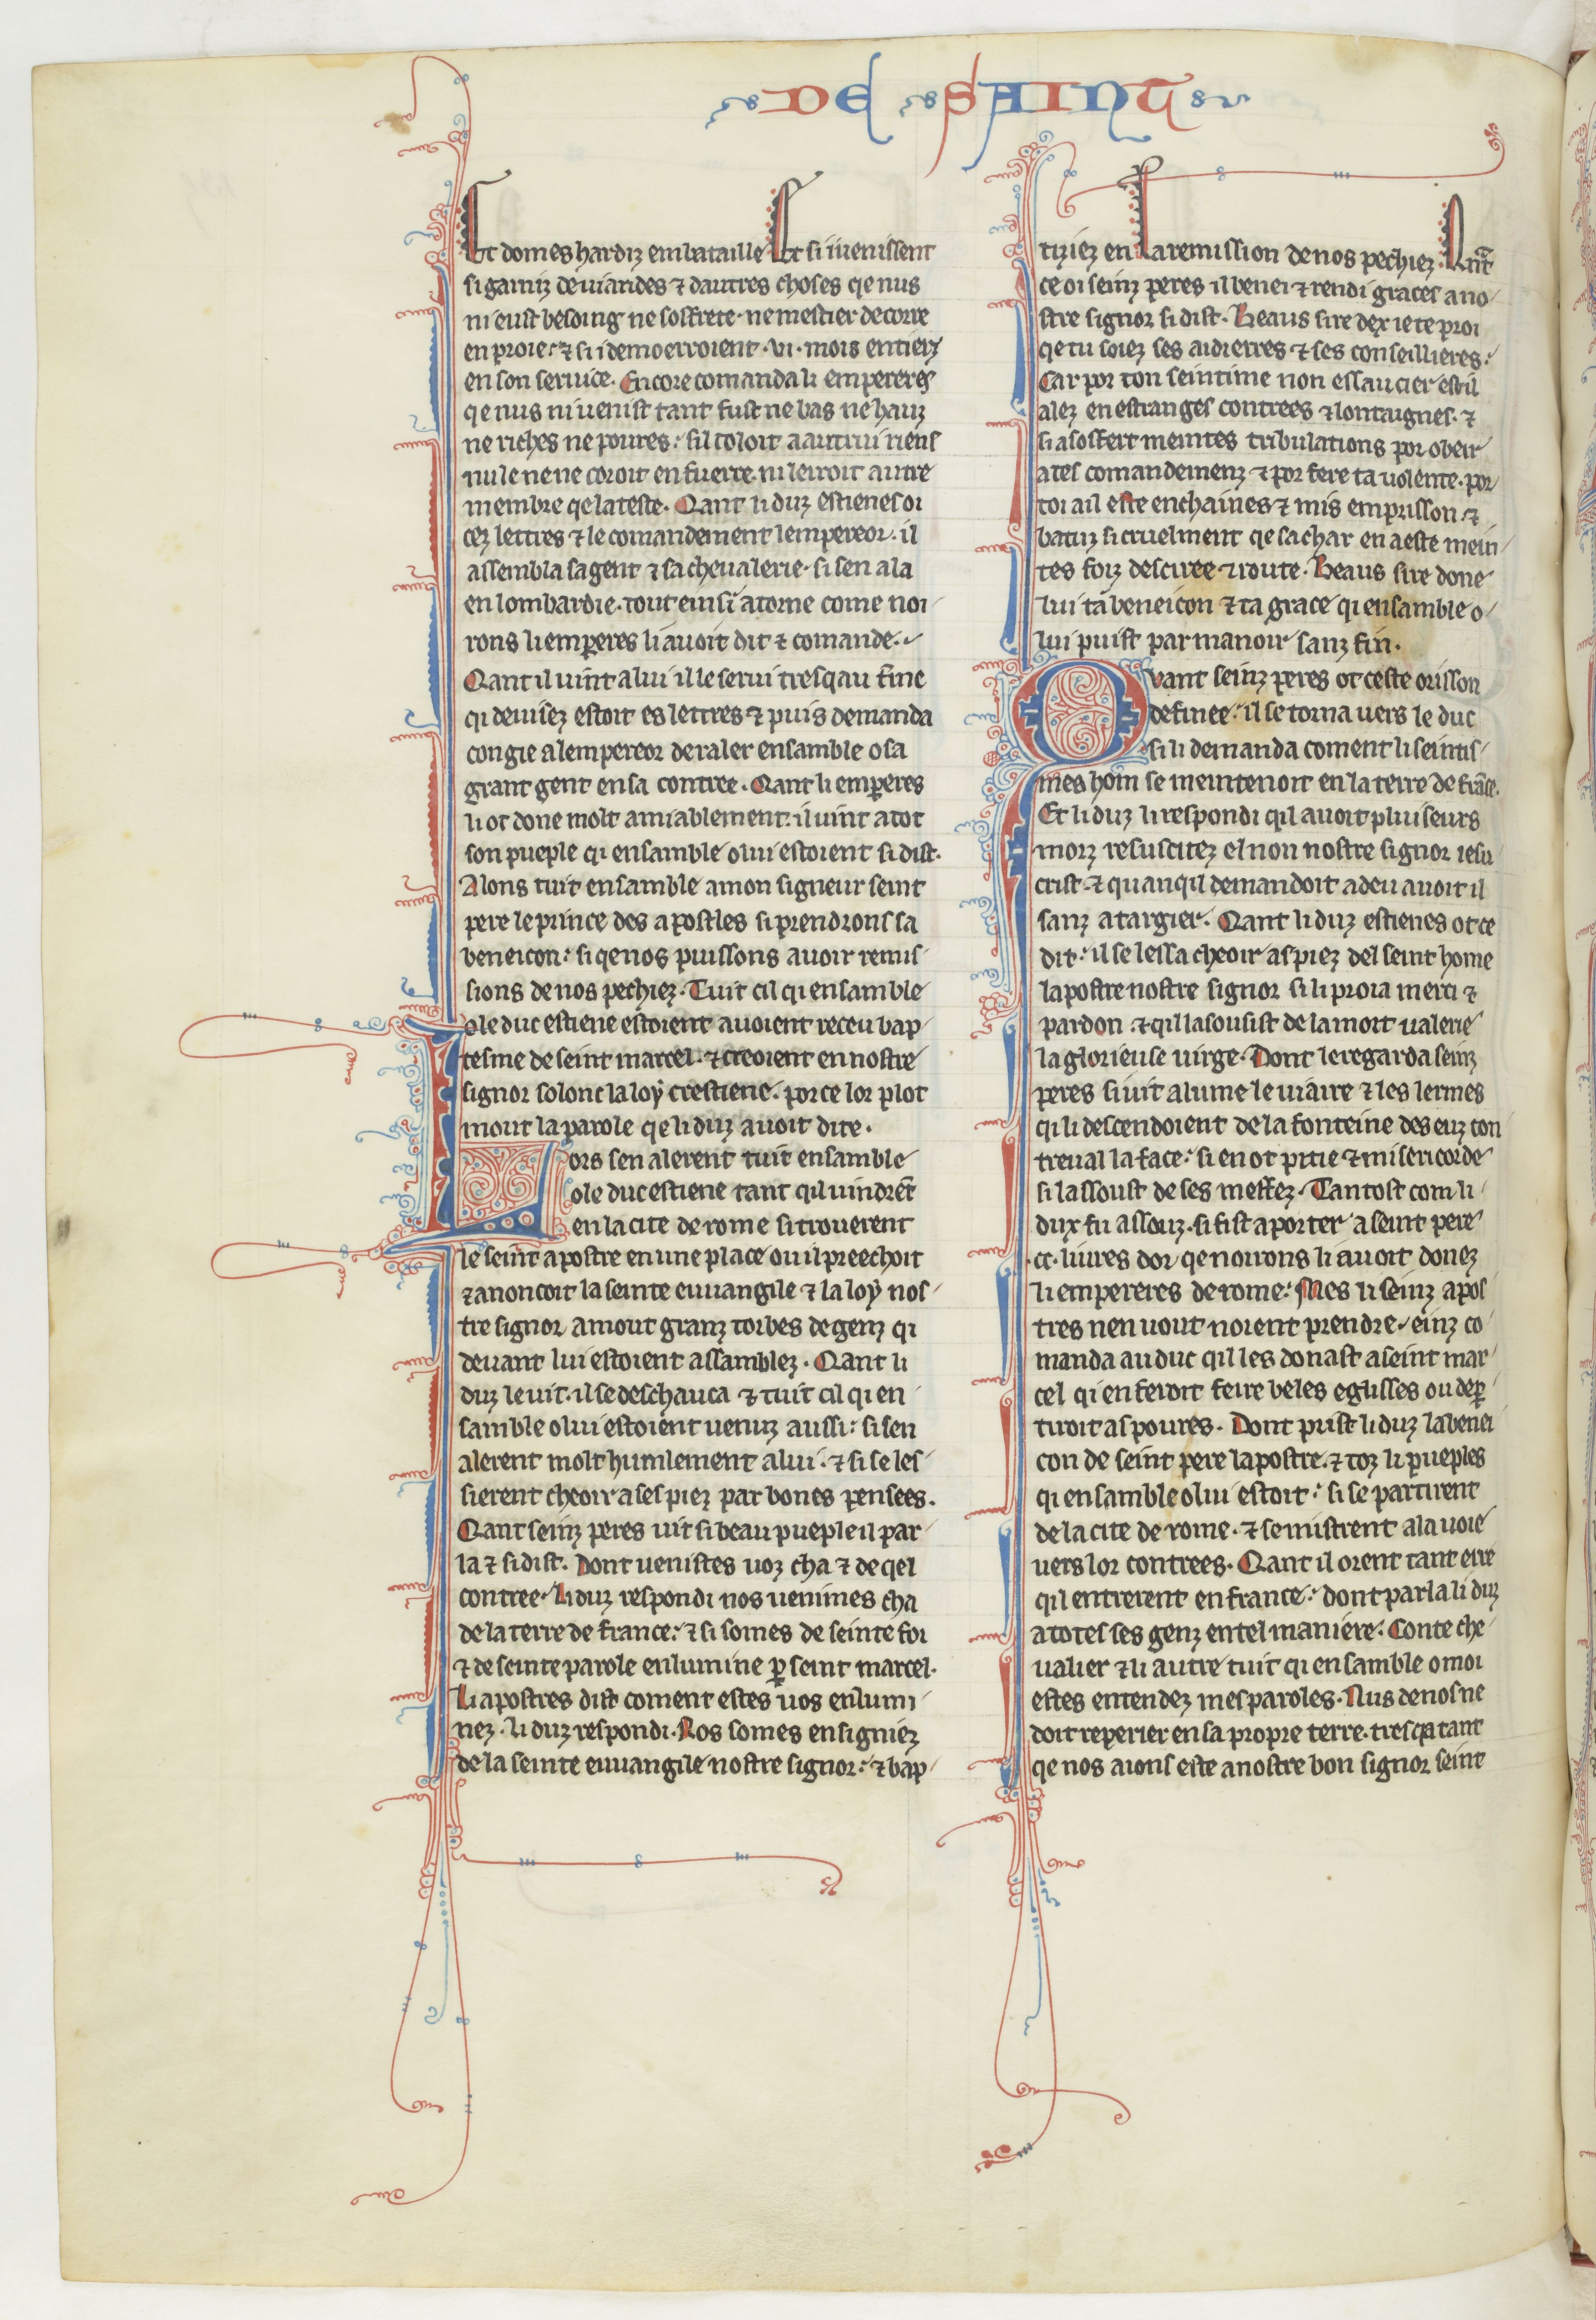 DE SAINT
Et domes hardiz em bataille Et si i uenissent
si garniz de uiandes ⁊ dautres choses qe nus
ni eust besoing ne soffrete. ne mestier de corre
en proie. ⁊ si i demoerroient .vi. mois entierz
en son seruice. Encore comanda li empereres
qe nus ni uenist tant fust ne bas ne hauz
ne riches ne poures. sil toloit a autrui riens
nule ne ne coroit en fuerre. ni leiroit autre
membre qe la teste. Qant li duz estienes oi
cez lettres ⁊ le comandement lempereor. il
assembla sa gent ⁊ sa cheualerie. si sen ala
en lombardie. tout einsi atorne come noi-
rons li emperes li auoit dit ⁊ comande.
Qant il uint a lui il le serui tresqau fine
qi deuisez estoit es lettres ⁊ puis demanda
congie a lempereor de raler ensamble o sa
grant gent en sa contree. Qant li emperes
li ot done molt amiablement. il uint a tot
son pueple qi ensamble o lui estoient si dist.
Alons tuit ensamble a mon signeur seint
pere le prince des apostles si prendrons sa
beneicon. si qe nos puissons auoir remis-
sions de nos pechiez. Tuit cil qi ensamble
o le duc estiene estoient auoient receu bap-
tesme de seint marcel. ⁊ creoient en nostre
signor solonc la loy crestiene. por ce lor plot
mout la parole qe li duz auoit dite.
Lors sen alerent tuit ensamble
o le duc estiene tant qil uindrēt
en la cite de rome si trouerent
le seint apostre en une place ou il preechoit
⁊ anoncoit la seinte euuangile ⁊ la loy nos-
tre signor a mout granz torbes de genz qi
deuant lui estoient assamblez. Qant li
duz le uit. il se deschauca ⁊ tuit cil qi en-
samble o lui estoient uenuz aussi. si sen
alerent molt humlement a lui. ⁊ si se les-
sierent cheoir a ses piez par bones pensees.
Qant seinz peres uit si beau pueple il par-
la ⁊ si dist. Dont uenistes uoz cha ⁊ de qel
contree. Li duz respondi nos uenimes cha
de la terre de france. ⁊ si somes de seinte foi
⁊ de seinte parole enlumine p seint marcel.
Li apostres dist coment estes uos enlumi-
nez. li duz respondi. Nos somes ensigniez
de la seinte euuangile nostre signor. ⁊ bap-
tiziez en La remission de nos pechiez. Qnt
ce oi seinz peres il benei ⁊ rendi graces a no-
stre signor si dist. Beaus sire dex ie te proi
qe tu soiez ses aidierres ⁊ ses conseillieres.
Car por ton seintime non essaucier est il
alez en estranges contrees ⁊ lontaignes. ⁊
si a soffert meintes tribulations por obeir
a tes comandemenz ⁊ por fere ta uolente. por
toi a il este enchaines ⁊ mis em prisson. ⁊
batuz si cruelment qe sa char en a este mein-
tes foiz desciree ⁊ route. Beaus sire done
lui ta beneicon ⁊ ta grace qi ensamble o
lui puist par manoir sanz fin.
Qvant seinz peres ot ceste orisson
definee. il se torna uers le duc
si li demanda coment li seintis-
mes hom se meintenoit en la terre de frāce.
Et li duz li respondi qil auoit pluiseurs
morz resuscitez el non nostre signor iesu
crist. ⁊ quanqil demandoit a deu auoit il
sanz atargier. Qant li duz estienes ot ce
dit. il se lessa cheoir as piez del seint home
lapostre nostre signor si li proia merci ⁊
pardon. ⁊ qil lasousist de la mort ualerie
la glorieuse uirge. Dont le regarda seinz
peres si uit alume le uiaire ⁊ les lermes
qi li descendoient de la fonteine des euz con
treual la face. si en ot pitie ⁊ misericorde
si lassoust de ses meffez. Tantost com li
dux fu assouz. si fist aporter a seint pere
.cc. liures dor qe noirons li auoit donez
li empereres de rome. Mes li seinz apos-
tres nen uout noient prendre. einz co-
manda au duc qil les donast a seint mar-
cel qi en feroit feire beles eglisses ou dep-
tiroit as poures. Dont prist li duz la benei
con de seint pere lapostre. ⁊ toz li pueples
qi ensamble o lui estoit. si se partirent
de la cite de rome. ⁊ se mistrent a la uoie
uers lor contrees. Qant il orent tant erre
qil entrerent en france. dont parla li duz
a totes ses genz en tel maniere. Conte che-
ualier ⁊ li autre tuit qi ensamble o moi
estes entendez mes paroles. Nus de nos ne
doit reperier en sa propre terre. tresqa tant
qe nos aions este a nostre bon signor seint